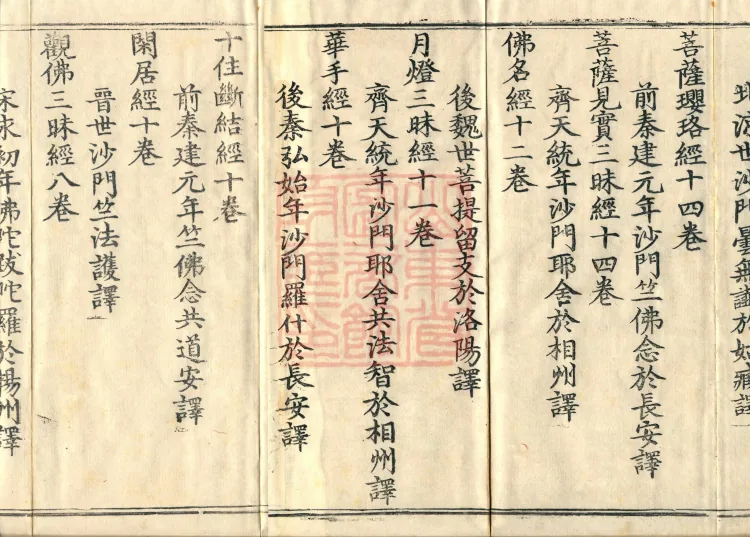 北涼世沙門曇無讖於姑臧譯
菩薩瓔珞經十四卷
前秦建元年沙門竺佛念於長安譯
菩薩見實三昧經十四卷
齊天統年沙門耶舍於相州譯
佛名經十二卷
後魏世菩提留支於洛陽譯
月燈三昧經十一卷
齊天統年沙門耶舍共法智於相州譯
華手經十卷
後秦弘始年沙門羅什於長安譯
十住斷結經十卷
前秦建元年竺佛念共道安譯
閑居經十卷
晉世沙門竺法護譯
觀佛三昧經八卷
宋永初年佛陀跋陀羅於揚州譯